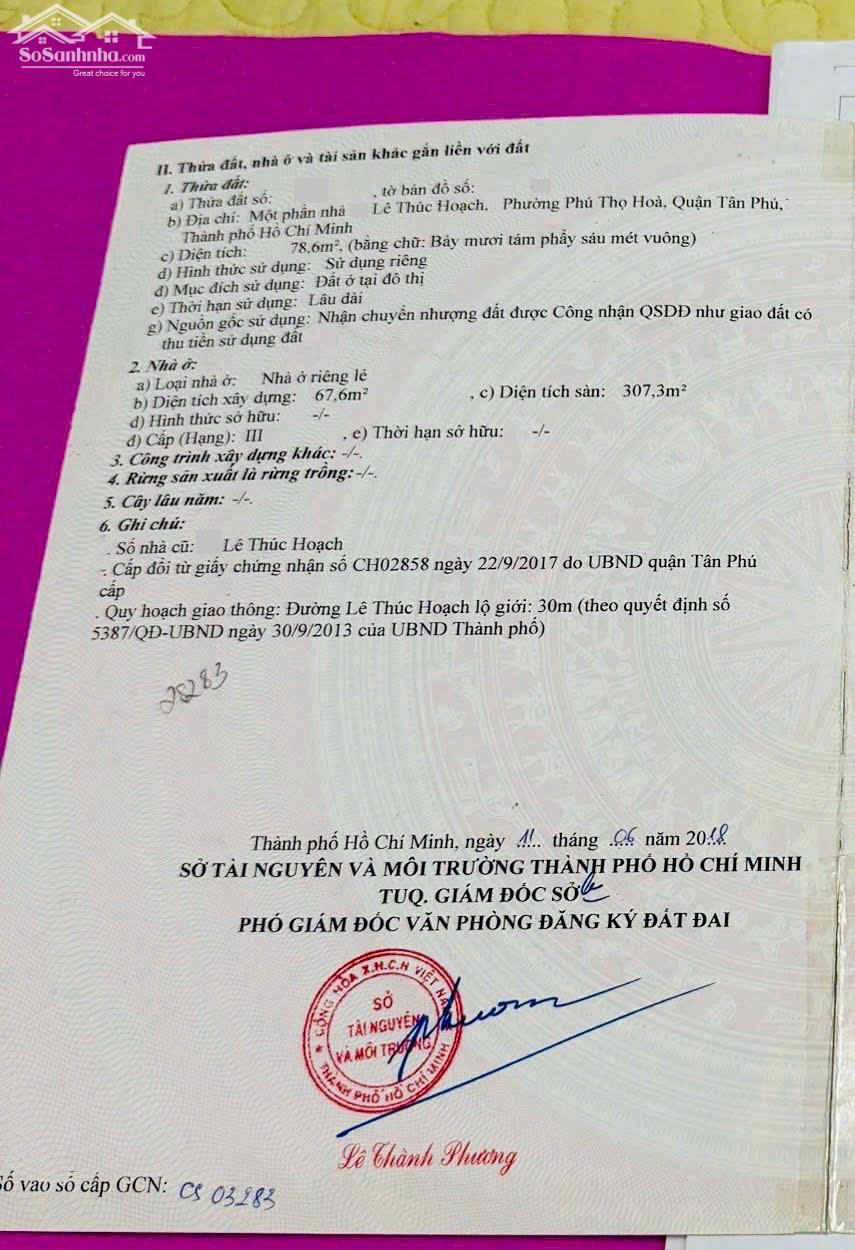 SoSanhnha.com
Great choice for you
II. Thửa đất, nhà ở và tài sản khác gắn liền với đất
1. Thửa đất:
a) Thửa đất số: , tờ bản đồ số:
b) Địa chỉ: Một phần nhà Lê Thúc Hoạch, Phường Phú Thọ Hoà, Quận Tân Phú,
Thành phố Hồ Chí Minh
c) Diện tích: 78,6m², (bằng chữ: Bảy mươi tám phẩy sáu mét vuông)
d) Hình thức sử dụng: Sử dụng riêng
đ) Mục đích sử dụng: Đất ở tại đô thị
e) Thời hạn sử dụng: Lâu dài
g) Nguồn gốc sử dụng: Nhận chuyển nhượng đất được Công nhận QSDĐ như giao đất có
thu tiền sử dụng đất
2. Nhà ở:
a) Loại nhà ở: Nhà ở riêng lẻ
b) Diện tích xây dựng: 67,6m² , c) Diện tích sàn: 307,3m²
d) Hình thức sở hữu: -/-
đ) Cấp (Hạng): III , e) Thời hạn sở hữu: -/-
3. Công trình xây dựng khác: -/-.
4. Rừng sản xuất là rừng trồng: -/-.
5. Cây lâu năm: -/-.
6. Ghi chú:
. Số nhà cũ: Lê Thúc Hoạch
- Cấp đổi từ giấy chứng nhận số CH02858 ngày 22/9/2017 do UBND quận Tân Phú
cấp
. Quy hoạch giao thông: Đường Lê Thúc Hoạch lộ giới: 30m (theo quyết định số
5387/QĐ-UBND ngày 30/9/2013 của UBND Thành phố)
28283
Thành phố Hồ Chí Minh, ngày 11 tháng 06 năm 2018
SỞ TÀI NGUYÊN VÀ MÔI TRƯỜNG THÀNH PHỐ HỒ CHÍ MINH
TUQ. GIÁM ĐỐC SỞ
PHÓ GIÁM ĐỐC VĂN PHÒNG ĐĂNG KÝ ĐẤT ĐAI
CỘNG HÒA X.H.C.H VIỆT NAM
SỞ
TÀI NGUYÊN
VÀ MÔI TRƯỜNG
THÀNH PHỐ HỒ CHÍ MINH
Lê Thành Phương
Số vào sổ cấp GCN: CS 03283